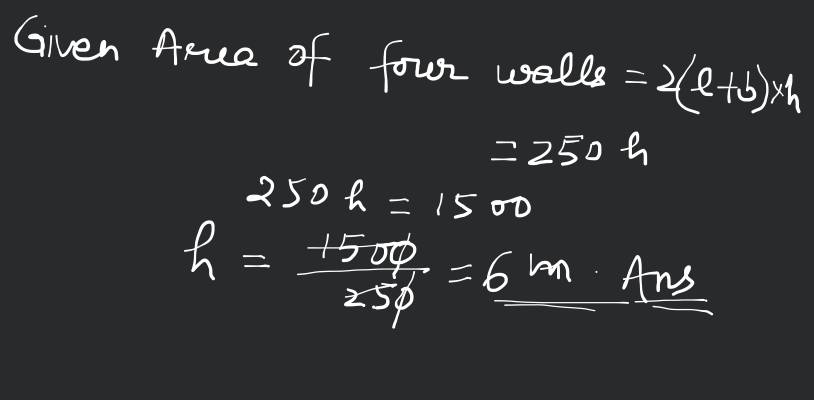 Given Area of four walls = 2(l+b)×h
= 250 h
250 h = 1500
h = 1500/250 = 6 m. Ans